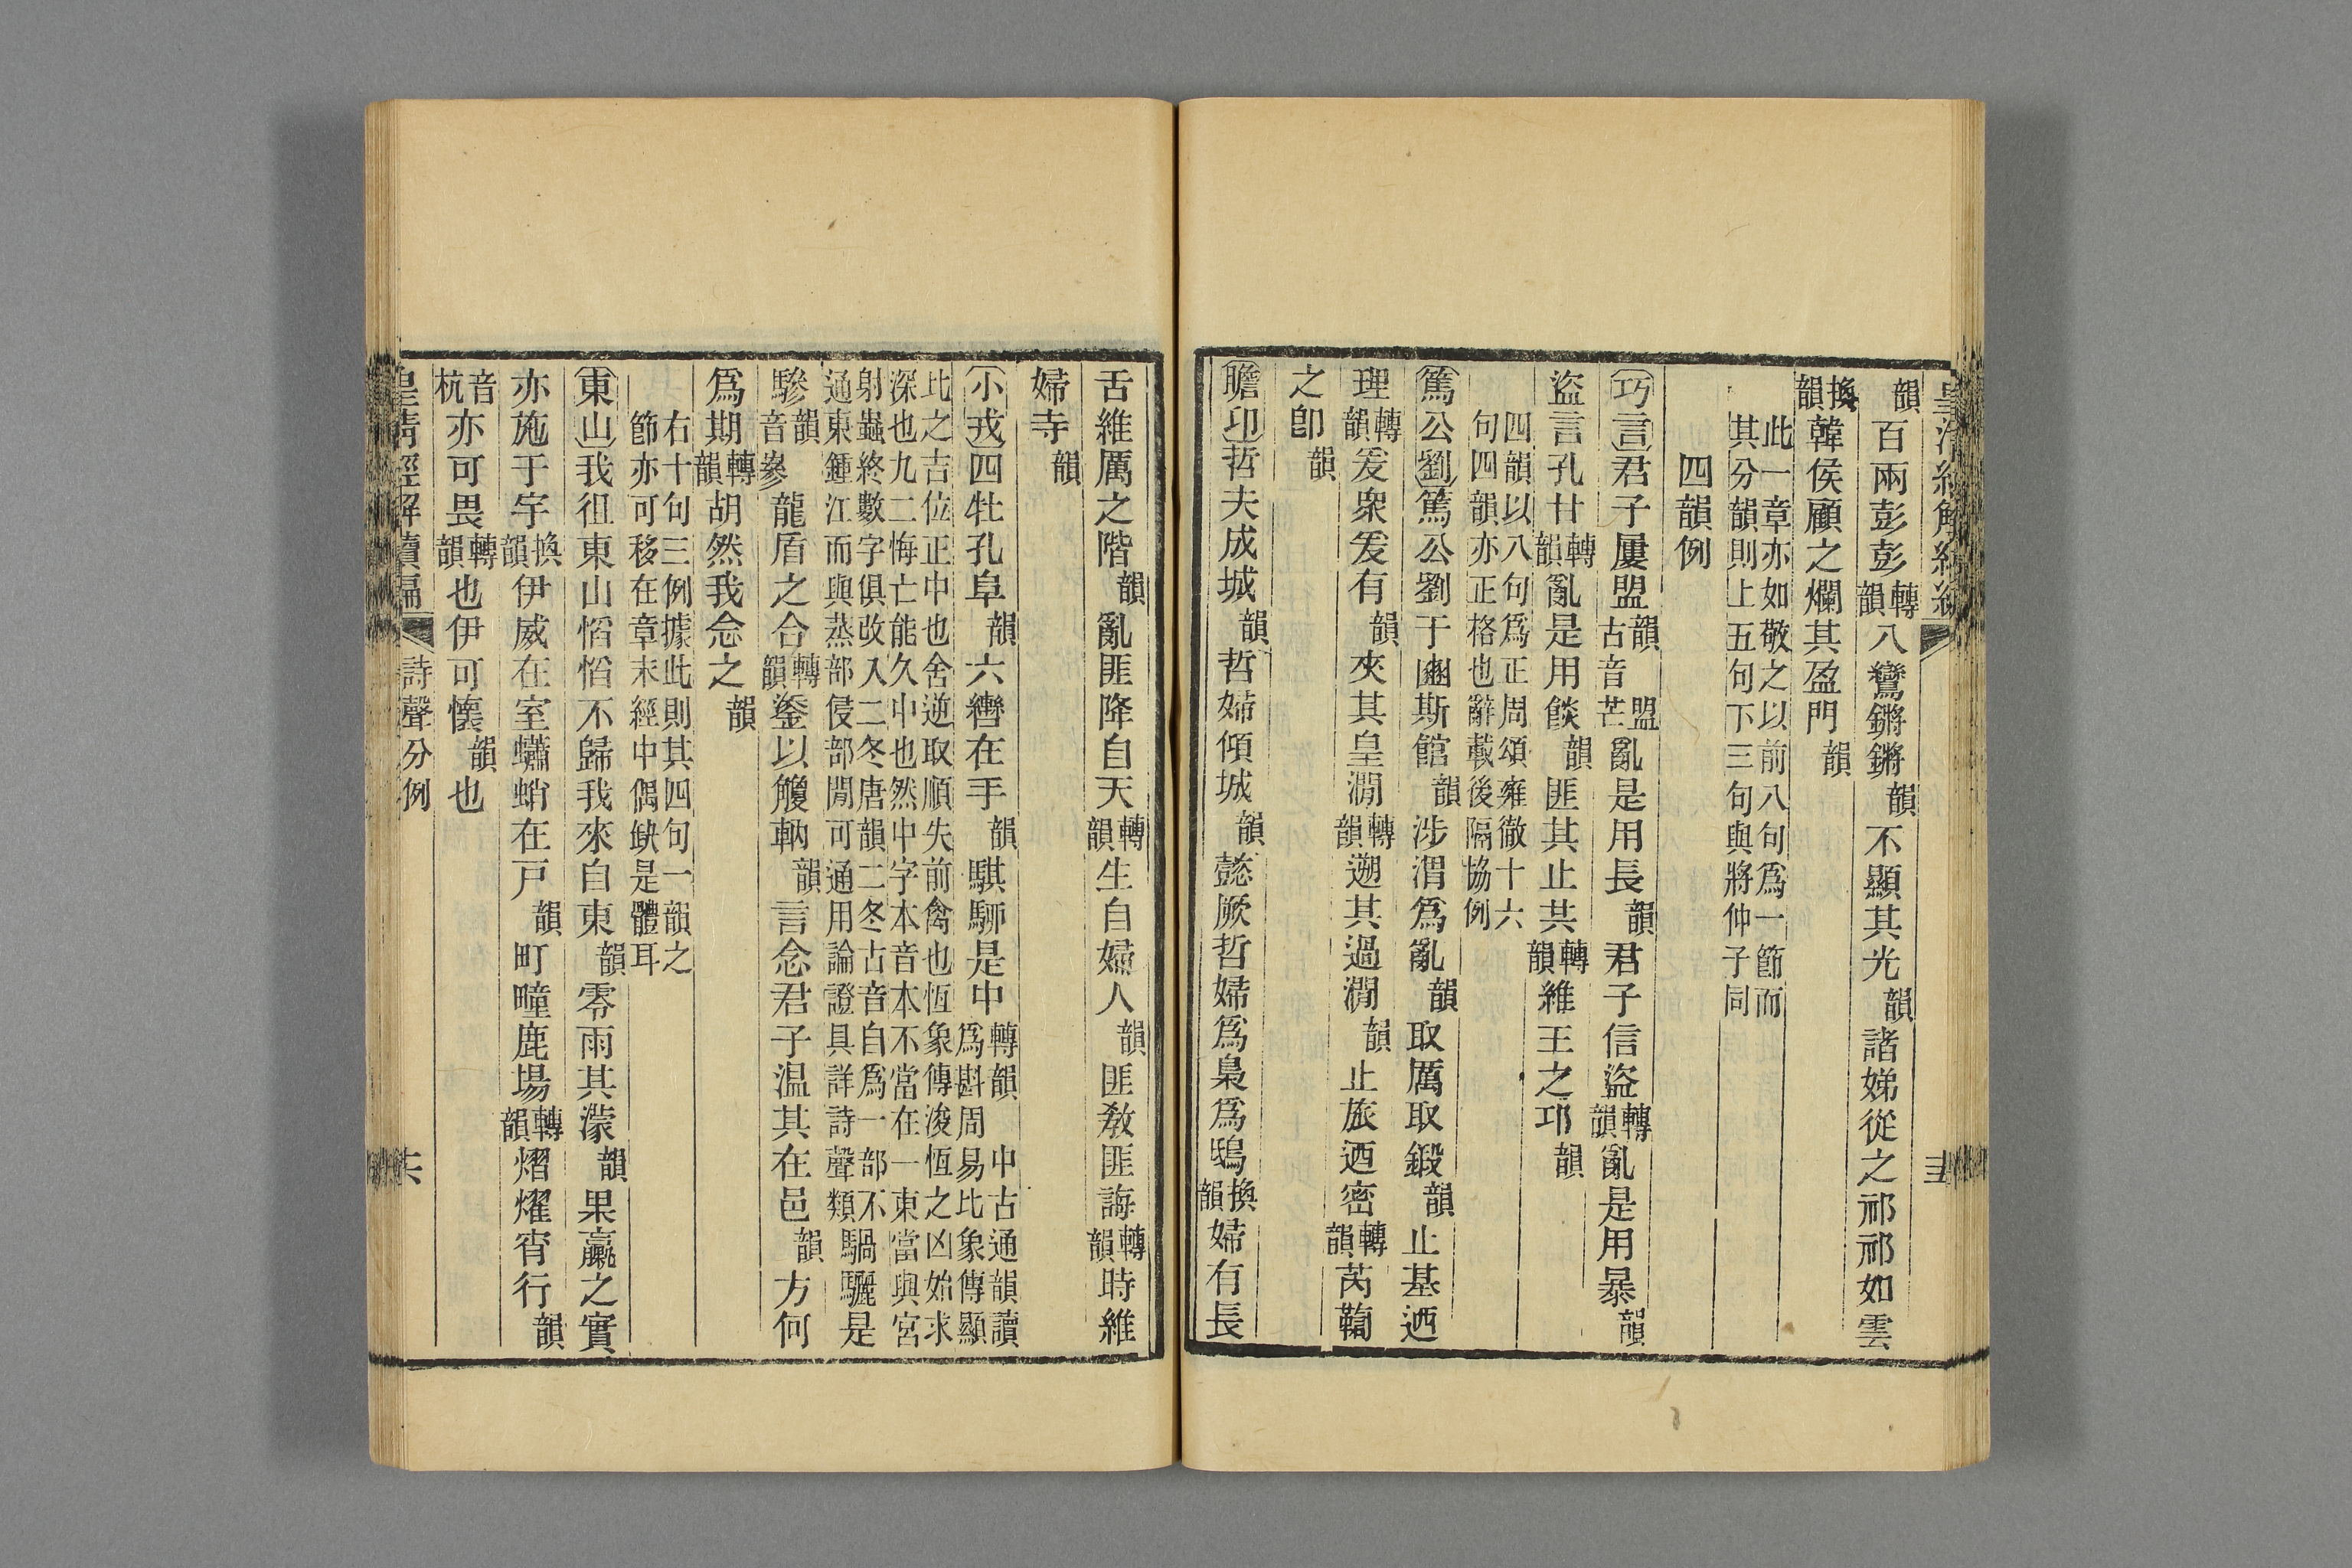 韻百兩彭彭轉韻八鸞鏘鏘韻不顯其光韻諸娣從之祁祁如雲
換韻韓侯顧之爛其盈門韻
此一章亦如敬之以前八句爲一節而
其分韻則上五句下三句與將仲子同
四韻例
巧言君子屢盟韻盟古音芒亂是用長韻君子信盜轉韻亂是用暴韻
盜言孔甘轉韻亂是用餤韻匪其止共轉韻維王之邛韻
四韻以八句爲正周頌雍徹十六
句四韻亦正格也辭載後隔協例
篤公劉篤公劉于豳斯館韻涉渭爲亂韻取厲取鍛韻止基迺
理轉韻爰衆爰有韻夾其皇澗轉韻遡其過澗韻止旅迺密轉韻芮鞫
之卽韻
瞻卬哲夫成城韻哲婦傾城韻懿厥哲婦爲梟爲鴟換韻婦有長
舌維厲之階韻亂匪降自天轉韻生自婦人韻匪敎匪誨轉韻時維
婦寺韻
小戎四牡孔阜韻六轡在手韻騏駵是中轉韻中古通韻讀
爲斟周易比象傳顯
比之吉位正中也舍逆取順失前禽也恆象傳浚恆之凶始求
深也九二悔亡能久中也然中字本音本不當在一東當與宮
射蟲終數字俱改入二冬唐韻二冬古音自爲一部不
通東鍾江而與蒸部侵部閒可通用論證具詳詩聲類騧驪是
驂韻音參龍盾之合轉韻鋈以觼軜韻言念君子温其在邑韻方何
爲期轉韻胡然我念之韻
右十句三例據此則其四句一韻之
節亦可移在章末經中偶缺是體耳
東山我徂東山慆慆不歸我來自東韻零雨其濛韻果臝之實
亦施于宇換韻伊威在室蠨蛸在戸韻町畽鹿場轉韻熠燿宵行韻
音杭亦可畏轉韻也伊可懷韻也
皇清經解續編 詩聲分例 十六